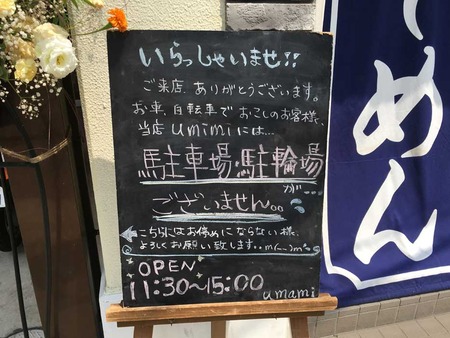 いらっしゃいませ!!
ご来店、ありがとうございます。
お車、自転車でおこしのお客様、
当店umimiには…
駐車場、駐輪場
が…
ございません。。
←こちらにはお停めにならない様、
よろしくお願い致します。。m(__)m
OPEN
11:30〜15:00
umami
めん